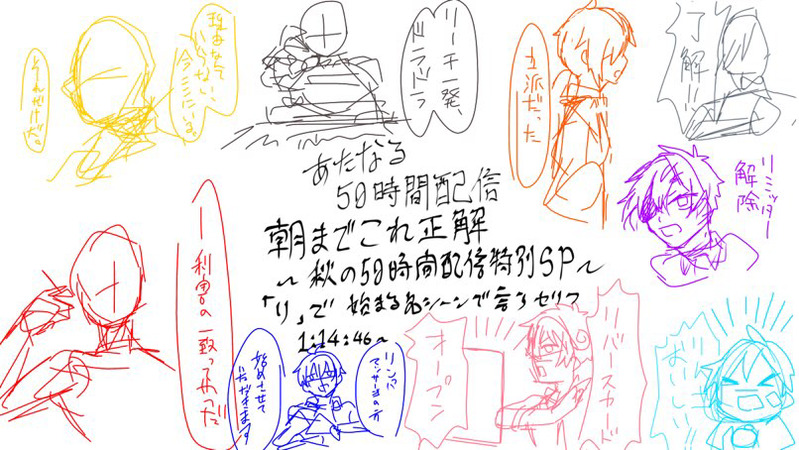 理由なんていらない、
今ここにいる。
それだけだ。
リーチ一発、
ドラドラ
立派だった
了解!!
リミッター
解除
あたなる
50時間配信
朝までこれ正解
~秋の50時間配信特別SP~
「り」で始まる名シーンで言うセリフ
1:14:46~
利害の一致ってやつだ
リンパ
マッサージの方
始めさせて
いただきます
リバースカード
オープン